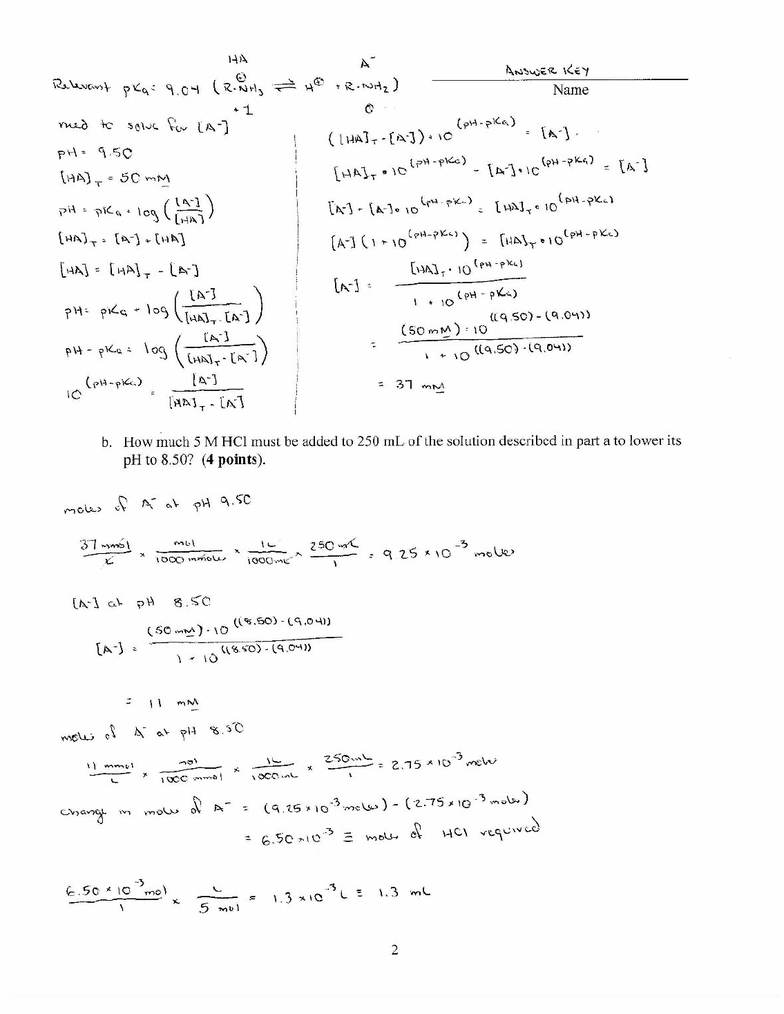 HA A⁻
Relevant pKa = 9.04 (R-NH₃ ⇌ H⊕ + R-NH₂)
⊕
+1 0
ANSWER KEY
Name
need to solve for [A⁻]
pH = 9.50
[HA]T = 50 mM
pH = pKa + log ([A⁻]/[HA])
[HA]T = [A⁻] + [HA]
[HA] = [HA]T - [A⁻]
pH = pKa + log ([A⁻]/[HA]T - [A⁻])
pH - pKa = log ([A⁻]/[HA]T - [A⁻])
10^(pH-pKa) = [A⁻]/[HA]T - [A⁻]
([HA]T - [A⁻]) • 10^(pH-pKa) = [A⁻]
[HA]T • 10^(pH-pKa) - [A⁻] • 10^(pH-pKa) = [A⁻]
[A⁻] + [A⁻] • 10^(pH-pKa) = [HA]T • 10^(pH-pKa)
[A⁻] (1 + 10^(pH-pKa)) = [HA]T • 10^(pH-pKa)
[A⁻] = [HA]T • 10^(pH-pKa) / 1 + 10^(pH-pKa)
= (50 mM) • 10^((9.50)-(9.04)) / 1 + 10^((9.50)-(9.04))
= 37 mM
b. How much 5 M HCl must be added to 250 mL of the solution described in part a to lower its
pH to 8.50? (4 points).
moles of A⁻ at pH 9.50
37 mmol/L × mol/1000 mmoles × 1L/1000mL × 250 mL/1 = 9.25 × 10⁻³ moles
[A⁻] at pH 8.50
[A⁻] = (50 mM) • 10^((8.50)-(9.04)) / 1 + 10^((8.50)-(9.04))
= 11 mM
moles of A⁻ at pH 8.50
11 mmol/L × mol/1000 mmol × 1L/1000mL × 250mL/1 = 2.75 × 10⁻³ moles
change in moles of A⁻ = (9.25 × 10⁻³ moles) - (2.75 × 10⁻³ moles)
= 6.50 × 10⁻³ ≡ moles of HCl required
6.50 × 10⁻³ mol/1 × L/5 mol = 1.3 × 10⁻³ L ≡ 1.3 mL
2